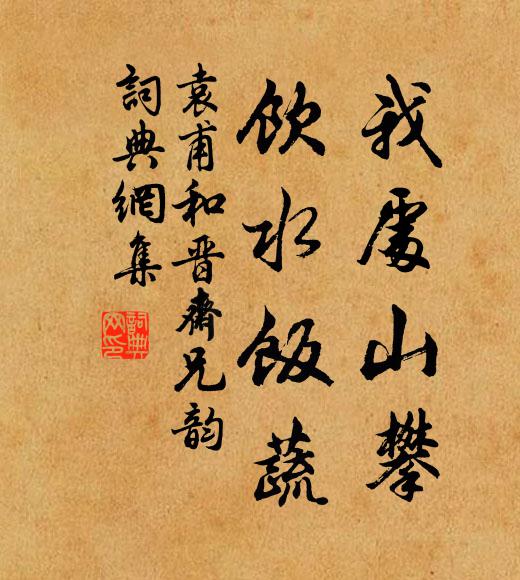 我處山攀
飲水飯蔬
袁甫和晋齋兄韵
詞典網集
詞典網印